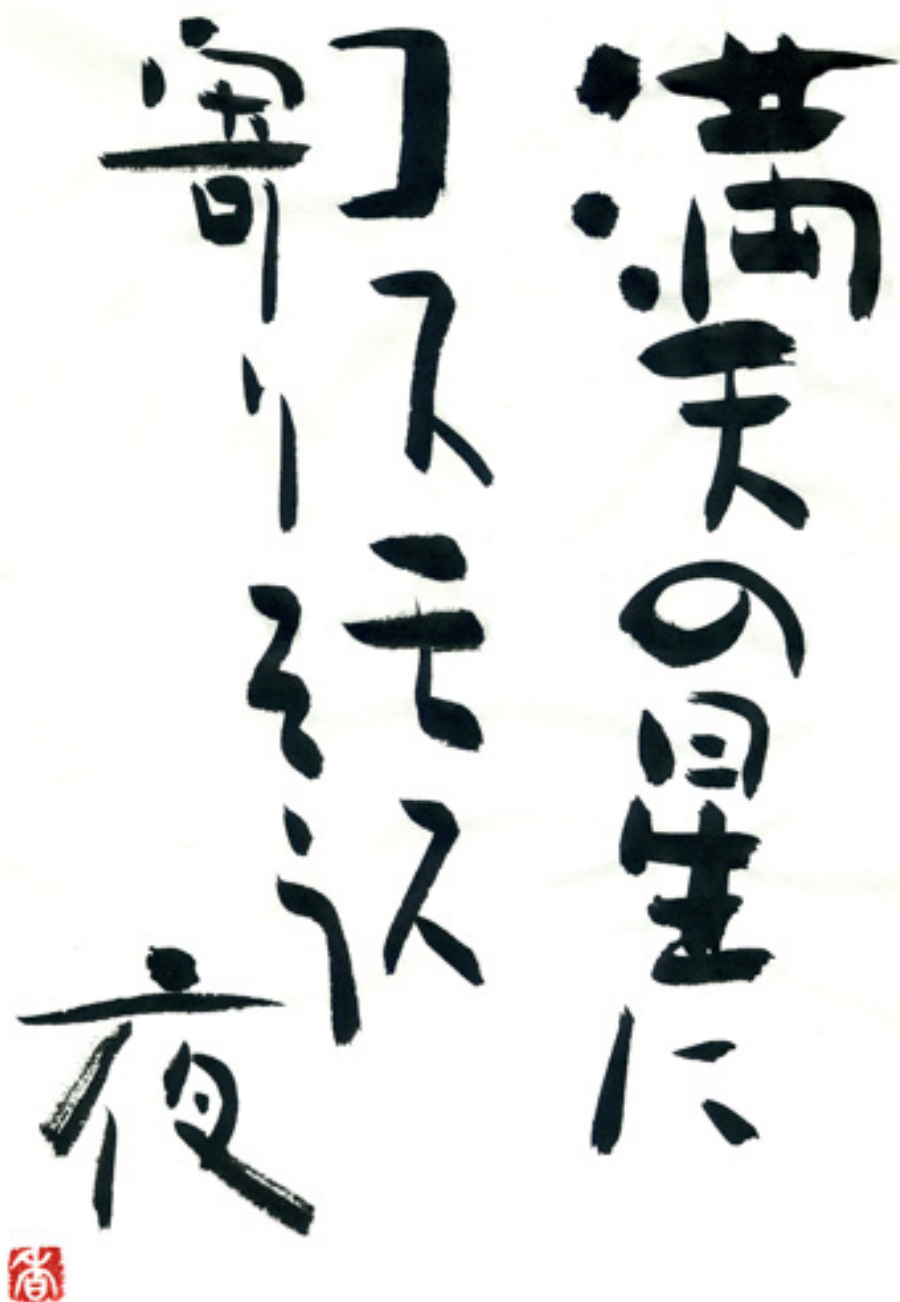 満天の星に
コスモス
寄りそう
夜
香